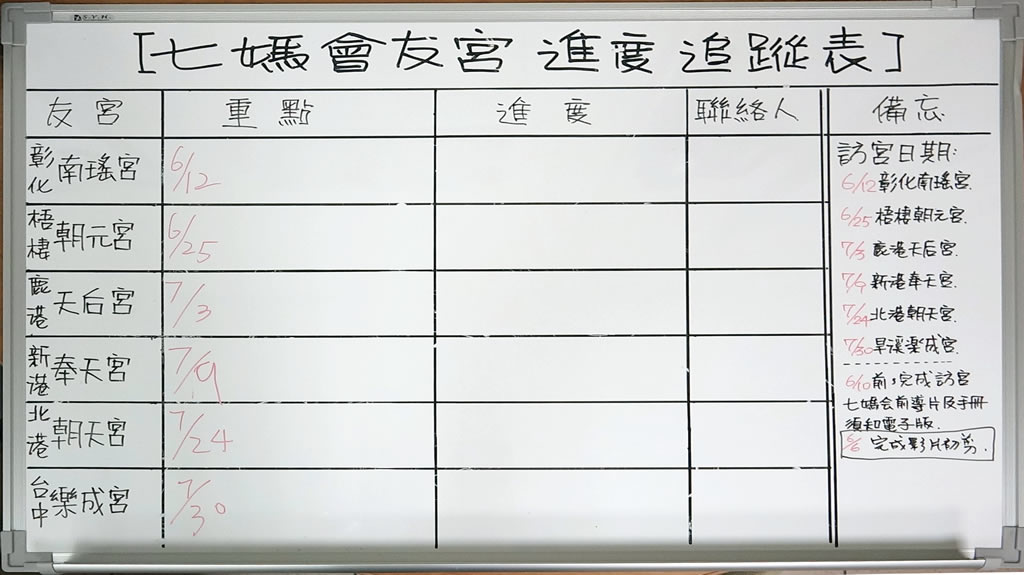 S.Y.H.
[七媽會友宮進度追蹤表]
友宮 重點 進度 聯絡人 備忘
彰化南瑤宮 6/12
梧棲朝元宮 6/25
鹿港天后宮 7/3
新港奉天宮 7/9
北港朝天宮 7/24
台中樂成宮 7/30
訪宮日期:
6/12彰化南瑤宮.
6/25 梧棲朝元宮.
7/3 鹿港天后宮.
7/9 新港奉天宮.
7/24北港朝天宮.
7/30旱溪楽成宮.
6/10前,完成訪宮
七媽会前導片及手冊
須知電子版.
完成影片初剪.